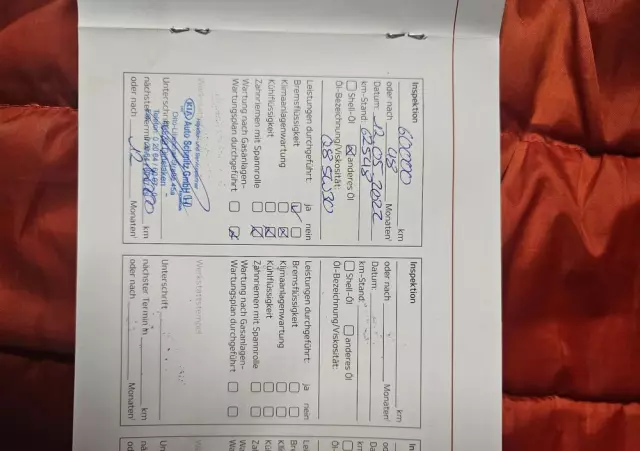 Inspektion
60000 km
oder nach Monaten
Datum:
km-Stand: 62548
Shell-Öl anderes Öl
Öl-Bezeichnung/Viskosität:
5W30
Leistungen durchgeführt: ja nein
Bremsflüssigkeit
Klimaanlagenwartung
Kühlflüssigkeit
Zahnriemen mit Spannrolle
Wartung nach Gasanlagen-
Wartungsplan durchgeführt
KIA Auto Schmitz GmbH
Unterschrift
nächster Termin km
oder nach 12 Monaten
Inspektion
km
oder nach Monaten
Datum:
km-Stand:
Shell-Öl anderes Öl
Öl-Bezeichnung/Viskosität:
Leistungen durchgeführt: ja nein
Bremsflüssigkeit
Klimaanlagenwartung
Kühlflüssigkeit
Zahnriemen mit Spannrolle
Wartung nach Gasanlagen-
Wartungsplan durchgeführt
Werkstattstempel
Unterschrift
nächster Termin in km
oder nach Monaten